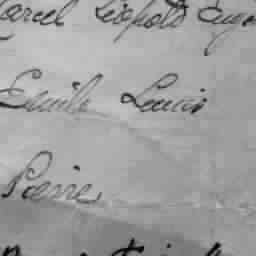 Marcel Léopold Eugè
Emile Louis
Pierre